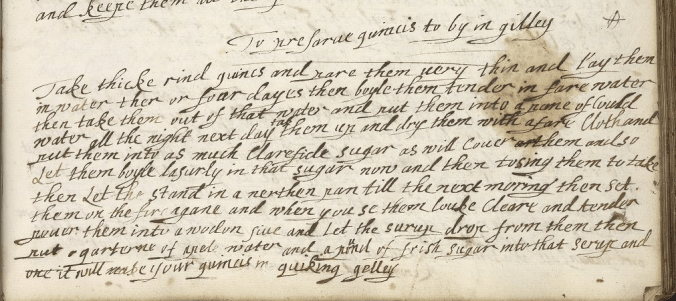 and keepe them
To presarve quinces to ly in gelley
Take thicke rind quincs and pare them very thin and lay then
in water ther or foar dayes then boyle them tender in fare water
then take them out of that water and put them into a pane of Could
water all the night next day take them up and dry them with a fare Cloth and
put them into as much Clarefide sugar as will Couer them and so
Let them boyle lasurly in that sugar now and then tosing them to take
then Let the stand in a nerthen pan till the next moring then set
them on the fire agane and when you se them Louke Cleare and tender
power them into a wodon siue and Let the surup drop from them then
put a quarterne of apele water and a pound of frish sugar into that serup and
it will make your quincis in quiking gelley